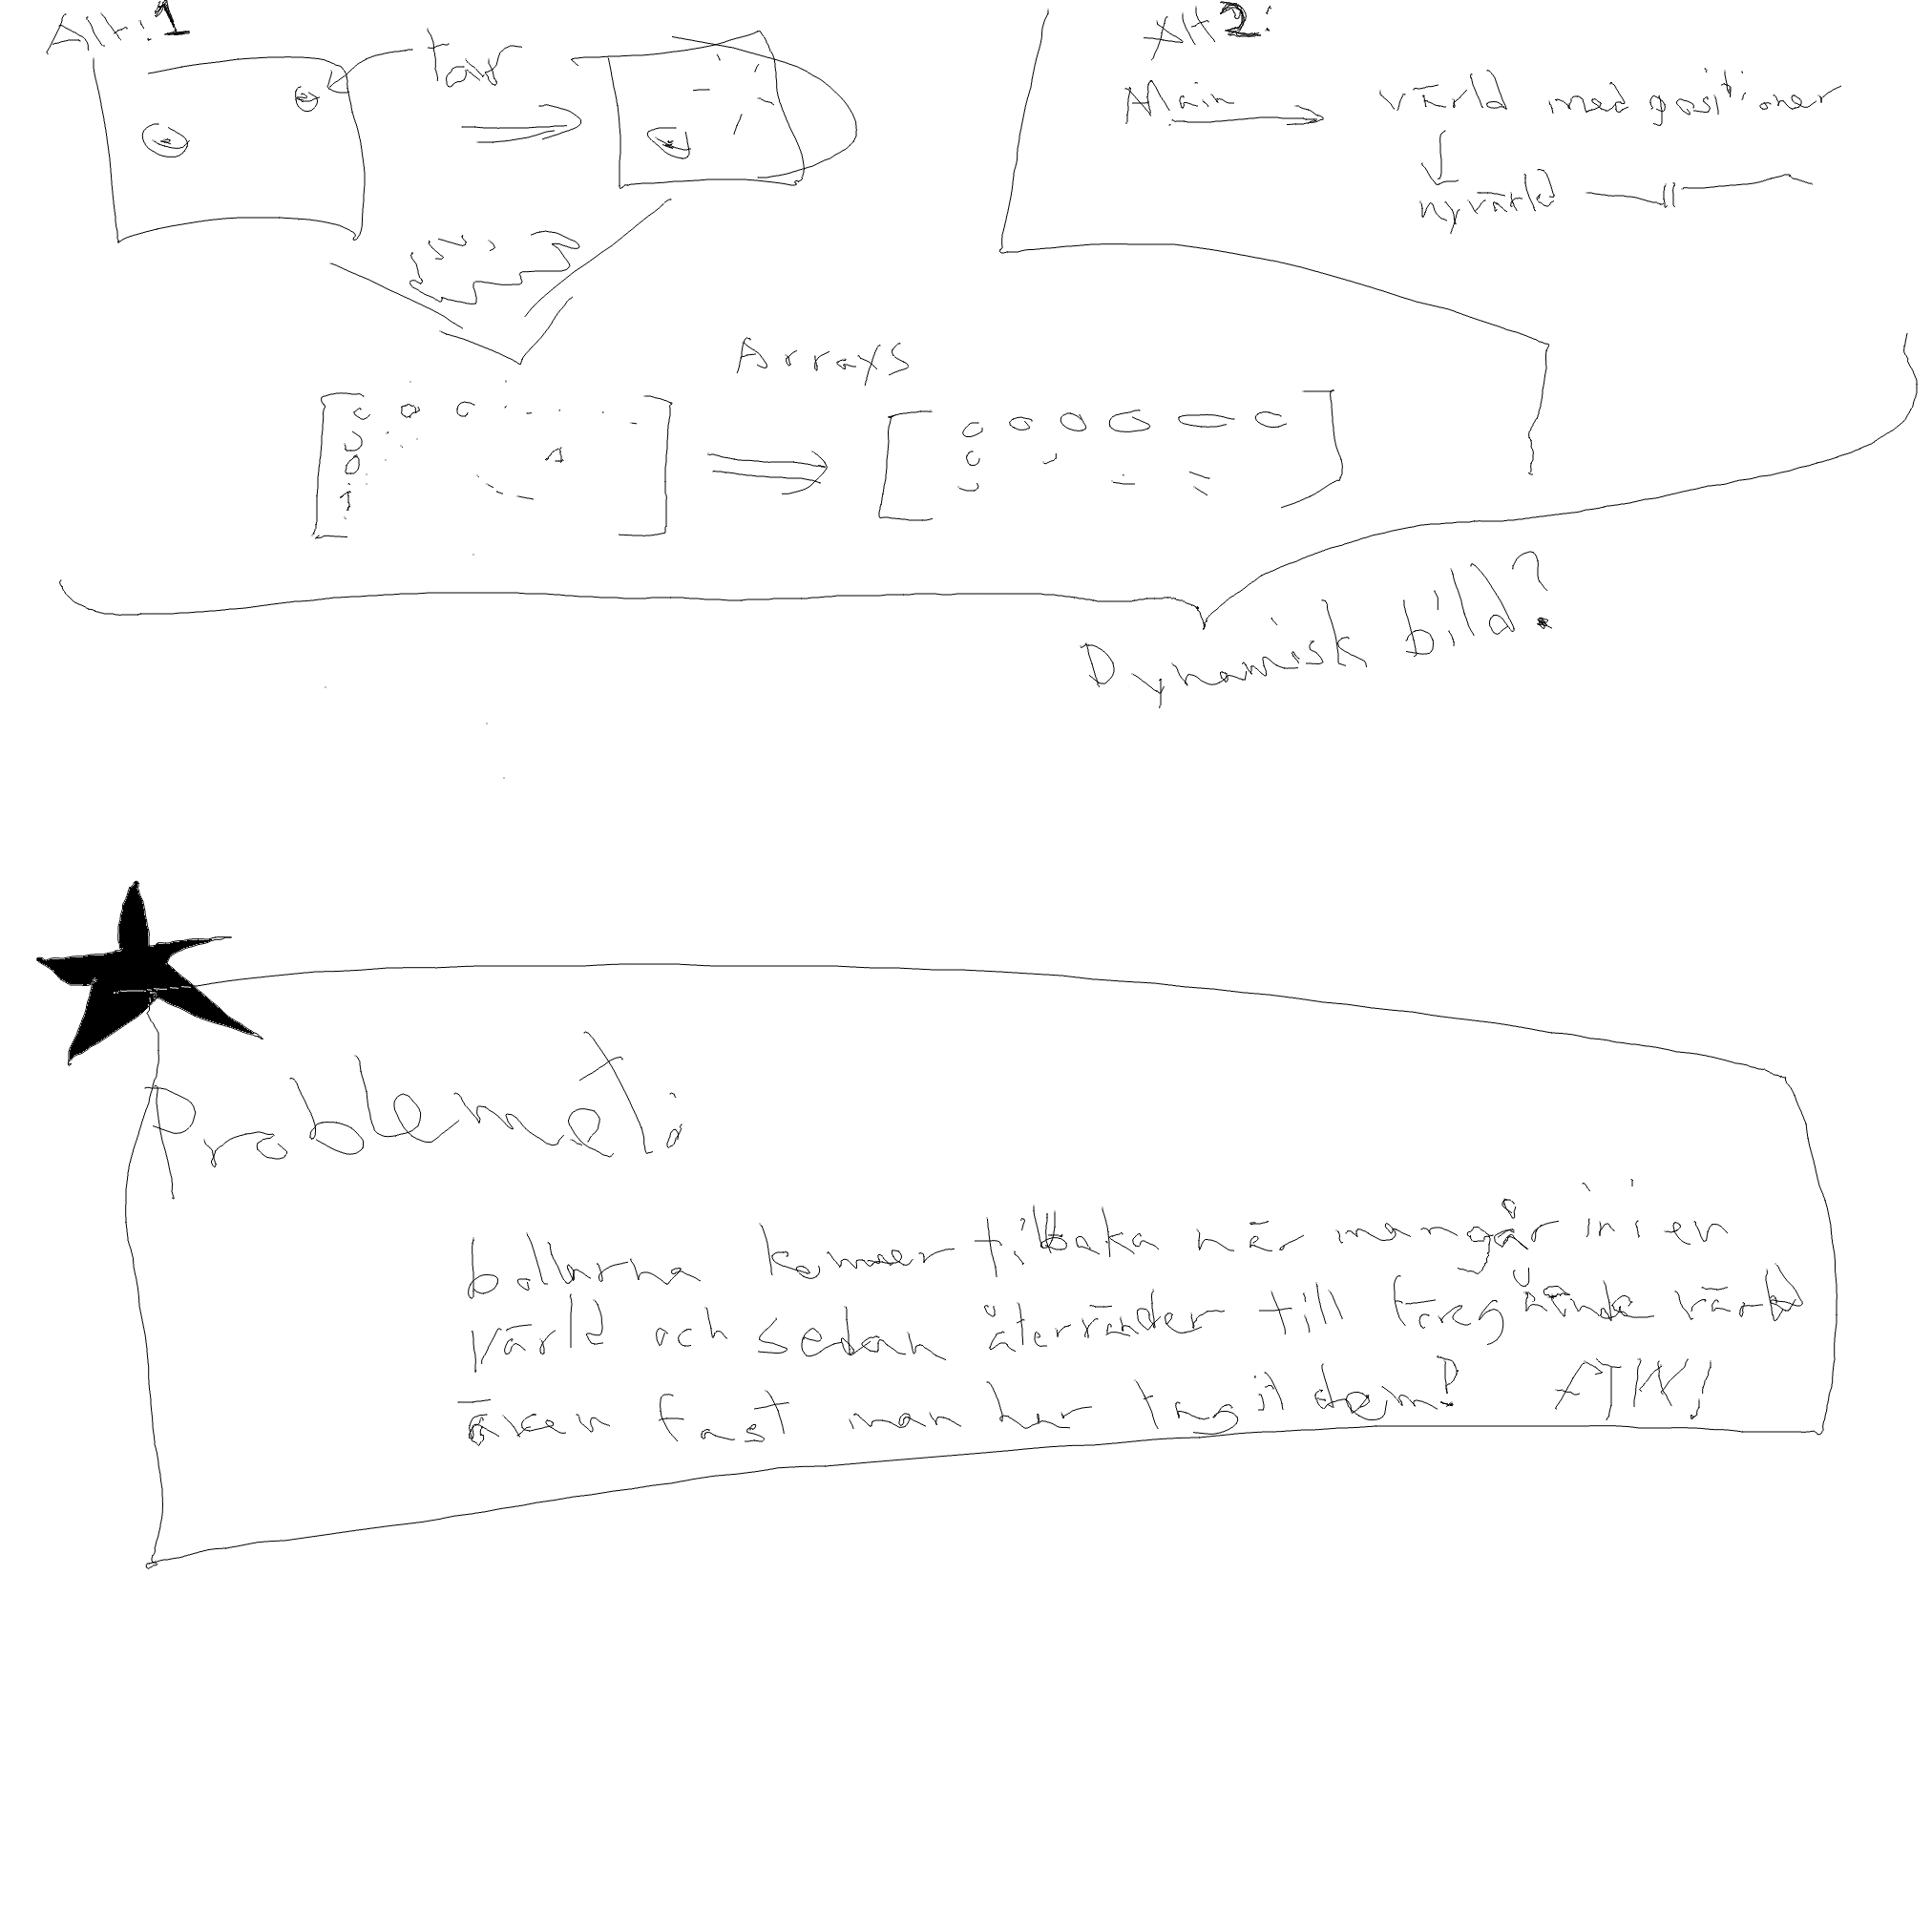 Alt:1
tar
Alt2:
Main
värld med positioner
ny värld
Arrays
0 0 0
0
0
1
1
0 0 0 0 0 0
0
Dynamisk bild?
Problemet:
bollarna kommer tillbaka när man går in i en
värld och sedan återvänder till föregående värld
även fast man har tagit dem?